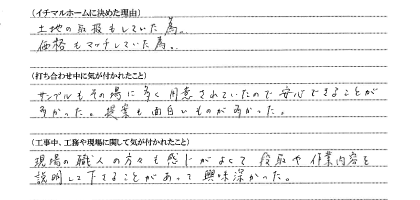 (イチマルホームに決めた理由)
土地の取扱もしていた為。
価格もマッチしていた為。
(打ち合わせ中に気が付かれたこと)
サンプルもその場に多く用意されていたので安心できることが
多かった。提案も面白いものが多かった。
(工事中、工務や現場に関して気が付かれたこと)
現場の職人の方々も感じがよくて段取や作業内容を
説明して下さることがあって興味深かった。